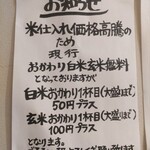 お知らせ
米仕入れ価格高騰の
ため
現行
おかわり白米玄米無料
となっておりますが
白米おかわり1杯目(大盛りまで)
50円プラス
玄米おかわり1杯目(大盛りまで)
100円プラス
となります。